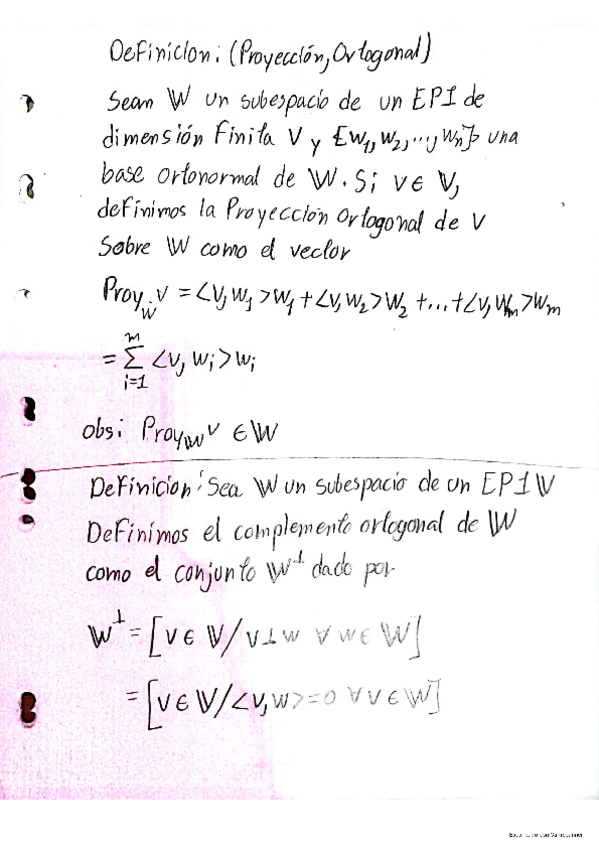 Definicion: (Proyección, Ortogonal)
Sean W un subespacio de un EPI de
dimensión Finita V y {w₁, w₂, ..., wₙ} una
base ortonormal de W. Si v ∈ V,
definimos la Proyección Ortogonal de V
Sobre W como el vector
Proy_W v = <v, w₁>w₁ + <v, w₂>w₂ + ... + <v, wₘ>wₘ
= Σ_{i=1}^{m} <v, wᵢ>wᵢ
obs: Proy_W v ∈ W
Definicion: Sea W un subespacio de un EPI V
Definimos el complemento ortogonal de W
como el conjunto W^⊥ dado por
W^⊥ = [v ∈ V / v ⊥ w ∀ w ∈ W]
= [v ∈ V / <v, w> = 0 ∀ v ∈ W]